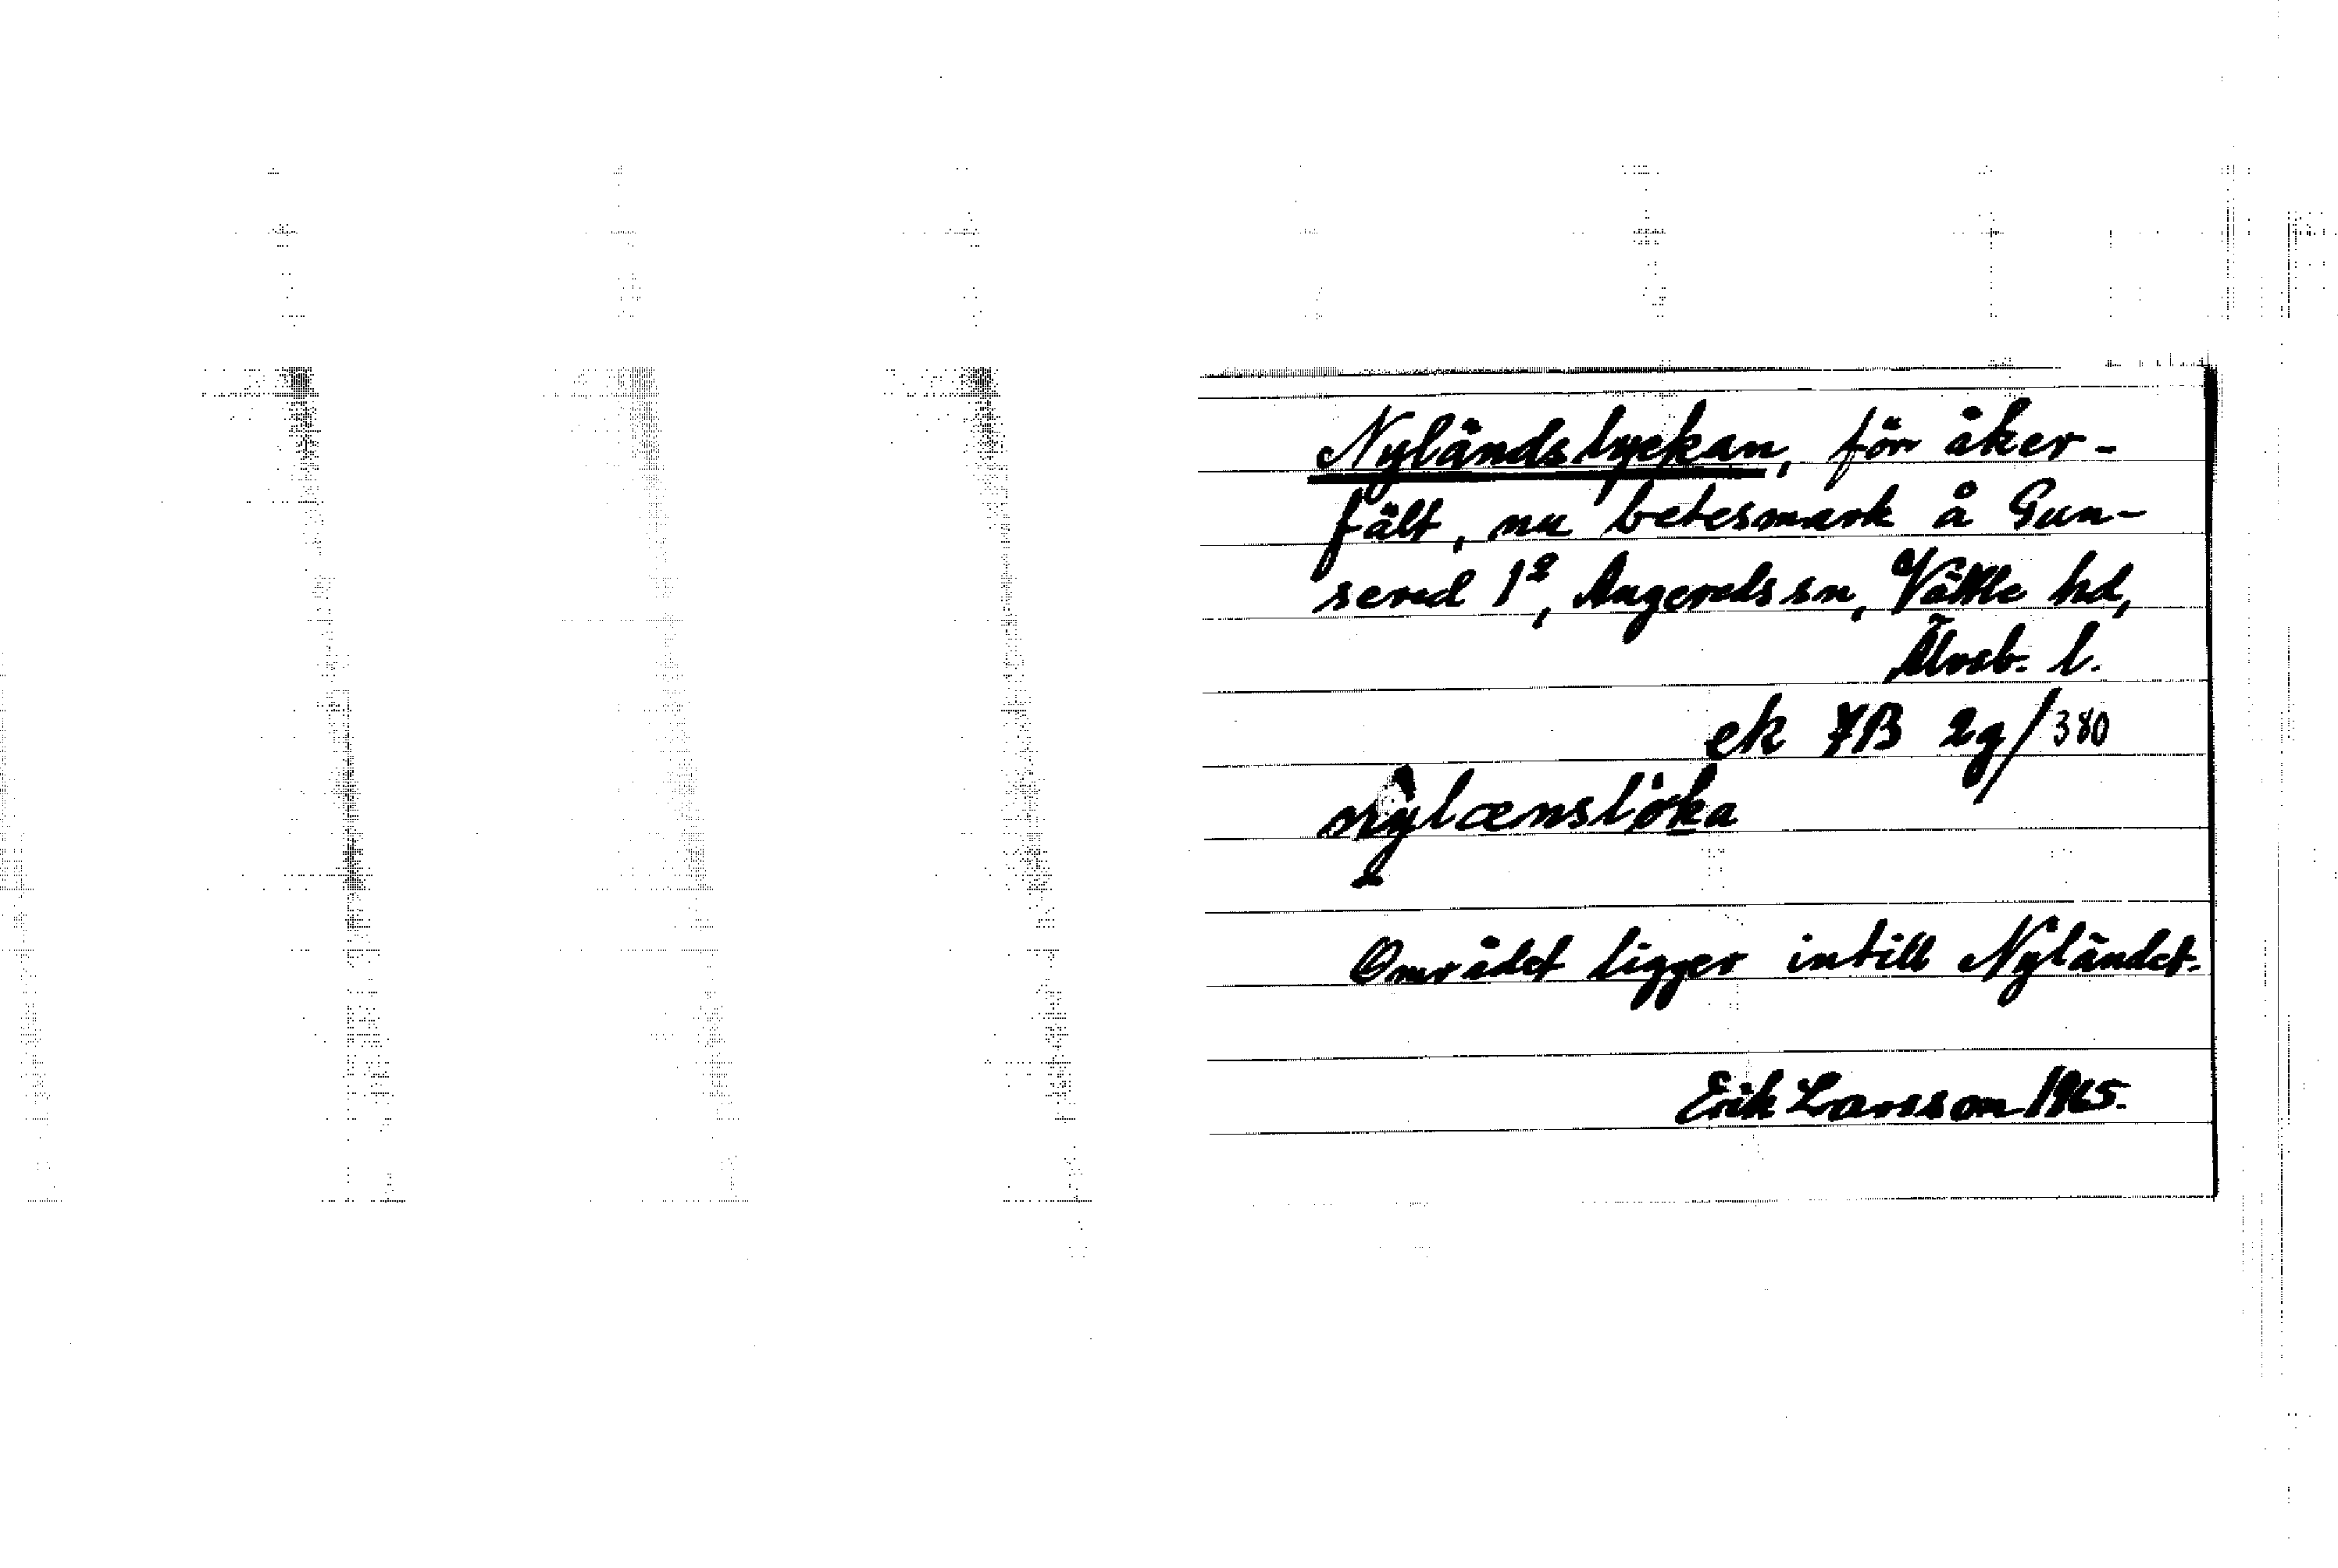 Nyländslyckan, förr åker-
fält, nu betesmark å Gun-
nered 1², Angereds sn, Vättle hd,
Älvsb. l.
ek 7B 2g/380
nylænslöka
Området ligger intill Nyländet.
Erik Larsson 1965.